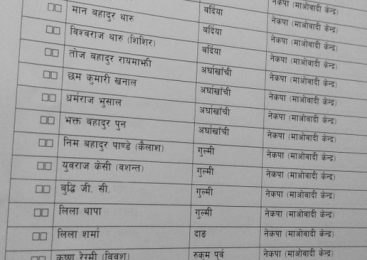 नेकपा (माओवादी केन्द्र)
मान बहादुर थारु बर्दिया नेकपा (माओवादी केन्द्र)
विश्वराज थारु (शिशिर) बर्दिया नेकपा (माओवादी केन्द्र)
तोज बहादुर रायमाझी बर्दिया नेकपा (माओवादी केन्द्र)
छम कुमारी खनाल अर्घाखाँची नेकपा (माओवादी केन्द्र)
धर्मराज भुसाल अर्घाखाँची नेकपा (माओवादी केन्द्र)
भक्त बहादुर पुन अर्घाखाँची नेकपा (माओवादी केन्द्र)
निम बहादुर पाण्डे (कैलाश) गुल्मी नेकपा (माओवादी केन्द्र)
युवराज केसी (वशन्त) गुल्मी नेकपा (माओवादी केन्द्र)
बुद्धि जी. सी. गुल्मी नेकपा (माओवादी केन्द्र)
लिला थापा गुल्मी नेकपा (माओवादी केन्द्र)
लिला शर्मा दाङ नेकपा (माओवादी केन्द्र)
कृष्णा रेग्मी (विवश) रुकुम पूर्व नेकपा (माओवादी केन्द्र)